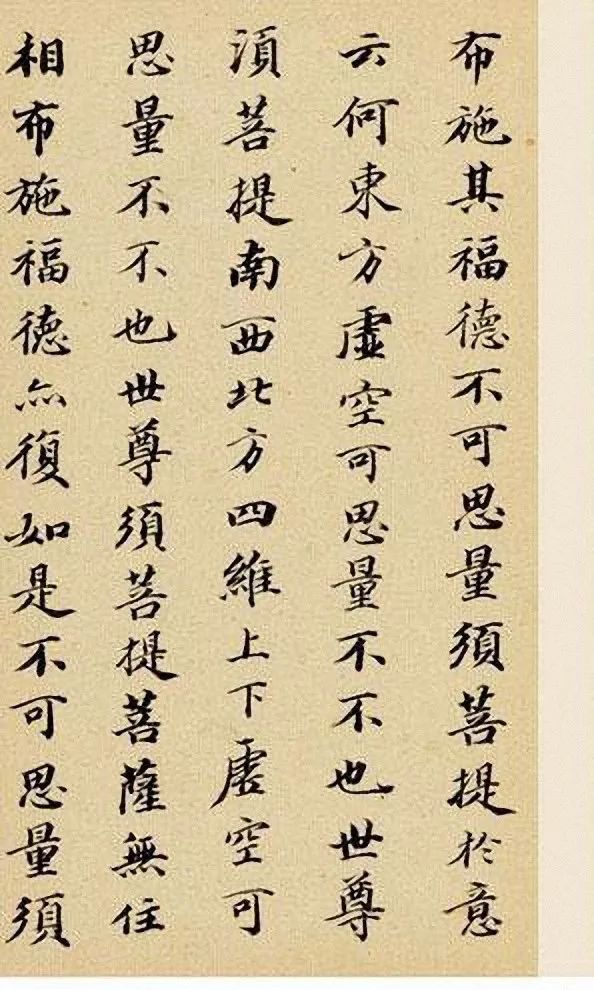 布施其福德不可思量須菩提於意
云何東方虛空可思量不不也世尊
湏菩提南西北方四維上下虛空可
思量不不也世尊須菩提菩薩無住
相布施福德亦復如是不可思量須